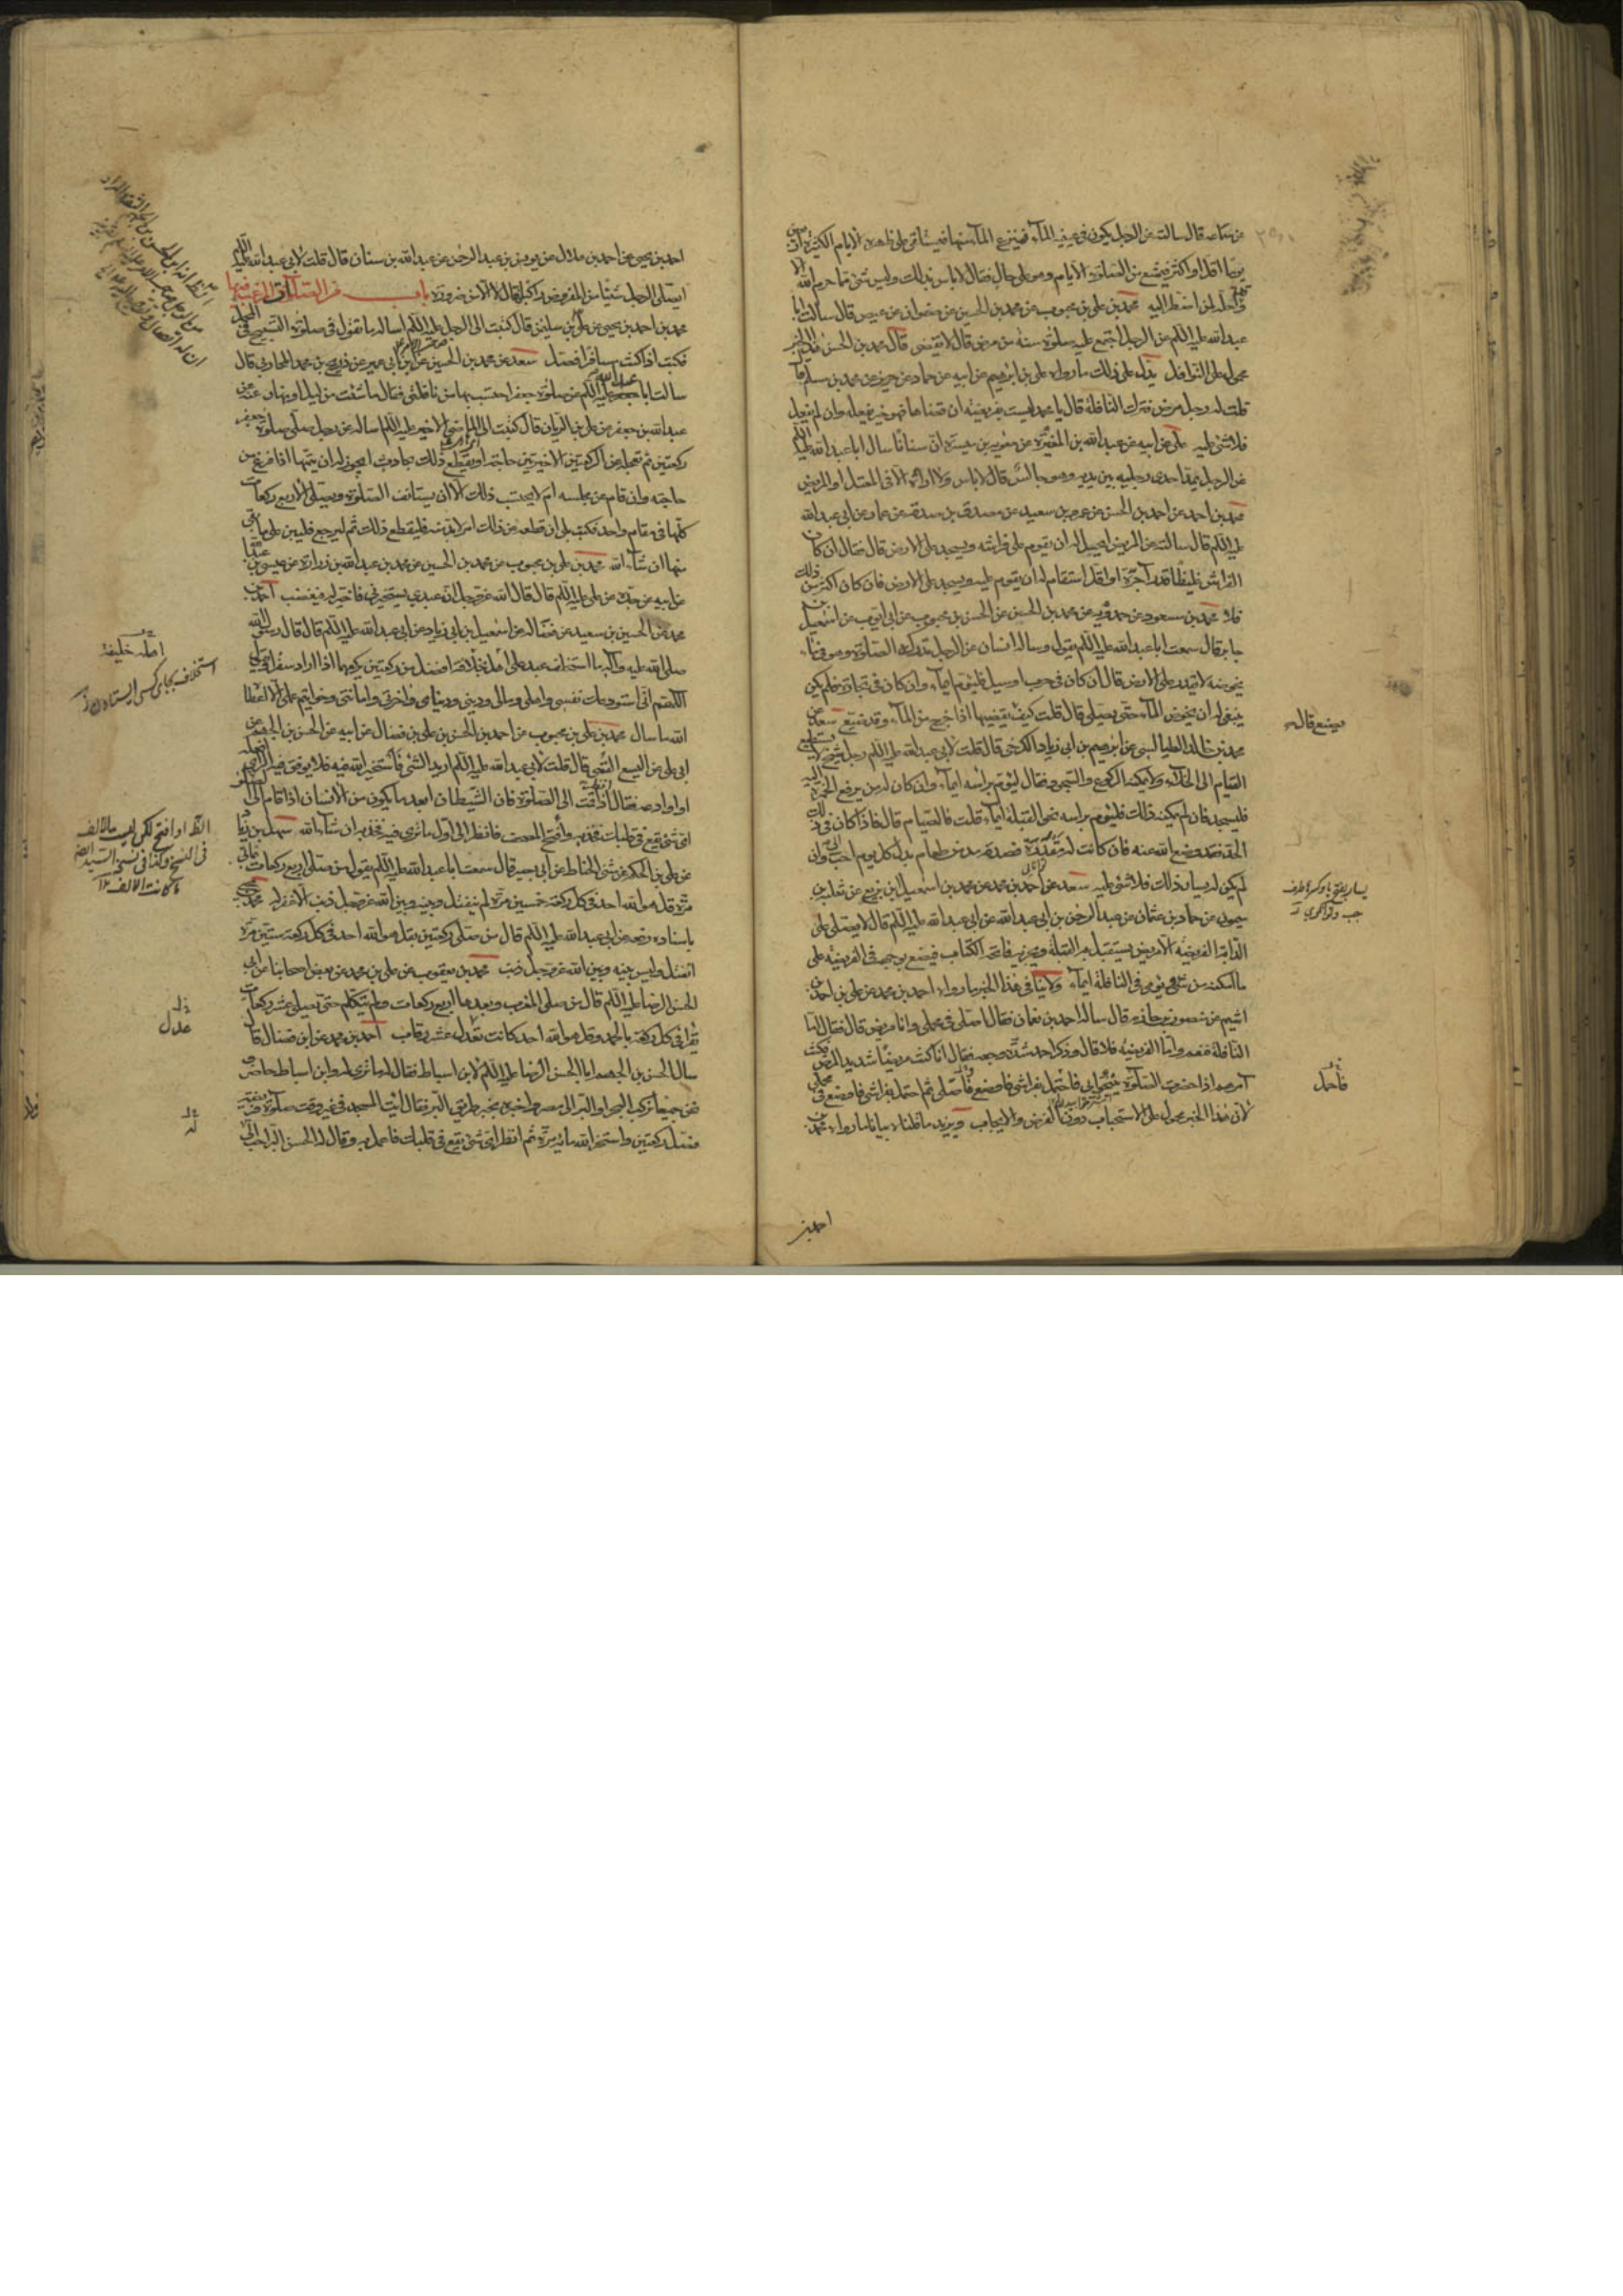 عن سماعه قال سالته عن الرجل يكون في عينيه الماء فينزع الماء منها فيستلقي على ظهره الايام الكثيرة اربعين
يوما اقل او اكثر فيمتنع من الصلوة الايام وهو على حال فقال لا باس بذلك وليس شئ مما حرم الله الا
وقد احله لمن اضطر اليه محمد بن علي بن محبوب عن محمد بن الحسين عن صفوان عن عيص قال سالت ابا
عبد الله عليه السلم عن الرجل اجتمع عليه صلوة سنة من مرض قال لا يقضي قال محمد بن الحسن هذا الخبر
محمول على النوافل يدل على ذلك ما رواه علي بن ابرهيم عن ابيه عن حماد عن حريز عن محمد بن مسلم قال
قلت له رجل مرض فترك النافلة قال يا محمد ليست بفريضة ان قضاها فهو خير يفعله وان لم يفعل
فلا شئ عليه علي عن ابيه عن عبد الله بن المغيرة عن معوية بن ميسرة ان سنانا سال ابا عبد الله عليه السلم
عن الرجل يمد احدى رجليه بين يديه وهو جالس قال لا باس ولا اراه الا قال في المعتل او المريض
محمد بن احمد عن احمد بن الحسن عن عمرو بن سعيد عن مصدق بن صدقة عن عمار عن ابي عبد الله
عليه السلم قال سالته عن المريض ايحل له ان يقوم على فراشه ويسجد على الارض قال فقال ان كان
الفراش غليظا قدر آجرة او اقل استقام له ان يقوم عليه ويسجد على الارض فان كان اكثر من ذلك
فلا محمد بن مسعود عن حمدويه عن محمد بن الحسين عن الحسن بن محبوب عن ابي ايوب عن اسمعيل بن
جابر قال سمعت ابا عبد الله عليه السلم يقول وساله انسان عن الرجل تدركه الصلوة وهو في ماء
يخوضه لا يقدر على الارض قال ان كان في حرب او سبيل فليؤم ايماء وان كان في تجارة فلم يكن
ينبغي له ان يخوض الماء حتى يصلي قال قلت كيف يقضيها اذا خرج من الماء وقد ضيع سعد عن
محمد بن خالد الطيالسي عن ابرهيم بن ابي زياد الكرخي قال قلت لابي عبد الله عليه السلم رجل شيخ لا يستطيع
القيام الى الخلاء ولا يمكنه الركوع والسجود فقال ليؤم براسه ايماء وان كان له من يرفع الخمرة اليه
فليسجد فان لم يمكنه ذلك فليؤم براسه نحو القبلة ايماء قلت فالصيام قال فاذا كان في ذلك
الحد فقد وضع الله عنه فان كانت له مقدرة فصدقة مد من طعام بدل كل يوم احب الي وان
لم يكن له يسار ذلك فلا شئ عليه سعد عن احمد بن محمد عن محمد بن اسمعيل بن بزيع عن ثعلبة بن
ميمون عن حماد بن عثمان عن عبد الرحمن بن ابي عبد الله عن ابي عبد الله عليه السلم قال لا يصلي على
الدابة الفريضة الا مريض يستقبل به القبلة ويجزيه فاتحة الكتاب فيضع بوجهه في الفريضة على
ما امكنه من شئ ويومي في النافلة ايماء ولا ينافي هذا الخبر ما رواه احمد بن محمد عن علي بن احمد بن
اشيم عن منصور بن حازم قال ساله احمد بن نعمان فقال اصلي في محملي وانا مريض قال فقال اما
النافلة فنعم واما الفريضة فلا قال وذكر احمد شدة وجعه فقال انا كنت مريضا شديد المرض فكنت
آمرهم اذا حضرت الصلوة ينيخوا بي فاحتمل بفراشي فاوضع واصلي ثم احتمل بفراشي فاوضع في محملي
لان هذا الخبر محمول على الاستحباب دون الفرض والايجاب ويزيد ما قلناه بيانا ما رواه محمد بن
احمد بن
فيضع قال
فاحمل
احمد بن يحيى عن احمد بن هلال عن يونس بن عبد الرحمن عن عبد الله بن سنان قال قلت لابي عبد الله عليه السلم
ايصلي الرجل شيئا من المفروض راكبا قال لا الا من ضرورة باب من الصلوات المرغب فيها
محمد بن احمد بن يحيى عن علي بن سليمن قال كتبت الى الرجل عليه السلم اساله ما تقول في صلوة التسبيح في المحمل
فكتب اذا كنت مسافرا فصل سعد عن محمد بن الحسين عن ابن ابي عمير عن ذريح بن محمد المحاربي قال
سالت ابا عبد الله عليه السلم عن صلوة جعفر احتسب بها من نافلتي فقال ما شئت من ليل او نهار عنه عن
عبد الله بن جعفر عن علي بن الريان قال كتبت الى الماضي الاخير عليه السلم اساله عن رجل صلى صلوة جعفر
ركعتين ثم تعجله عن الركعتين الاخيرتين حاجة او يقطع ذلك بحادث ايجوز له ان يتمها اذا فرغ من
حاجته وان قام عن مجلسه ام لا يحتسب ذلك الا ان يستانف الصلوة ويصلي الاربع ركعات
كلها في مقام واحد فكتب بلى ان قطعه عن ذلك امر لا بد منه فليقطع ذلك ثم ليرجع فليبن على ما بقي
منها ان شاء الله محمد بن علي بن محبوب عن محمد بن الحسين عن محمد بن عبد الله بن زرارة عن عيسى بن عبد الله
عن ابيه عن جده عن علي عليه السلم قال قال الله عز وجل ان عبدي يستخيرني فاخير له فيغضب احمد بن
محمد عن الحسين بن سعيد عن فضالة عن اسمعيل بن ابي زياد عن ابي عبد الله عليه السلم قال قال رسول الله
صلى الله عليه وآله ما استخلف عبد على اهله بخلافة افضل من ركعتين يركعهما اذا اراد سفرا يقول
اللهم اني استودعك نفسي واهلي ومالي وديني ودنياي وآخرتي وامانتي وخواتيم عملي الا اعطاه
الله ما سال محمد بن علي بن محبوب عن احمد بن الحسن بن علي بن فضال عن ابيه عن الحسن بن الجهم عن
ابي علي عن اليسع القمي قال قلت لابي عبد الله عليه السلم اريد الشئ فاستخير الله فيه فلا يوفق فيه الراي افعله
او ادعه فقال انظر اذا قمت الى الصلوة فان الشيطان ابعد ما يكون من الانسان اذا قام الى الصلوة
اي شئ يقع في قلبك فخذ به وافتح المصحف فانظر الى اول ما ترى فيه فخذ به ان شاء الله سهل بن زياد
عن علي بن الحكم عن مثنى الحناط عن ابي بصير قال سمعت ابا عبد الله عليه السلم يقول من صلى اربع ركعات بمائتي
مرة قل هو الله احد في كل ركعة خمسين مرة لم ينفتل وبينه وبين الله عز وجل ذنب الا غفر له محمد بن يحيى
باسناده رفعه عن ابي عبد الله عليه السلم قال من صلى ركعتين بقل هو الله احد في كل ركعة ستين مرة
انفتل وليس بينه وبين الله عز وجل ذنب محمد بن يعقوب عن علي بن محمد عن بعض اصحابنا عن ابي
الحسن الرضا عليه السلم قال من صلى المغرب وبعدها اربع ركعات ولم يتكلم حتى يصلي عشر ركعات
يقرا في كل ركعة بالحمد وقل هو الله احد كانت تعدل عشر رقاب احمد بن محمد عن ابن فضال قال
سال الحسن بن الجهم ابا الحسن الرضا عليه السلم لابن اسباط فقال له ما ترى له وابن اسباط حاضر
نحن جميعا نركب البحر او البر الى مصر واخبره بخبر طريق البر فقال ائت المسجد في غير وقت صلوة فريضة
فصل ركعتين واستخر الله مائة مرة ثم انظر اي شئ يقع في قلبك فاعمل به وقال له الحسن البر احب الي
عدل
له